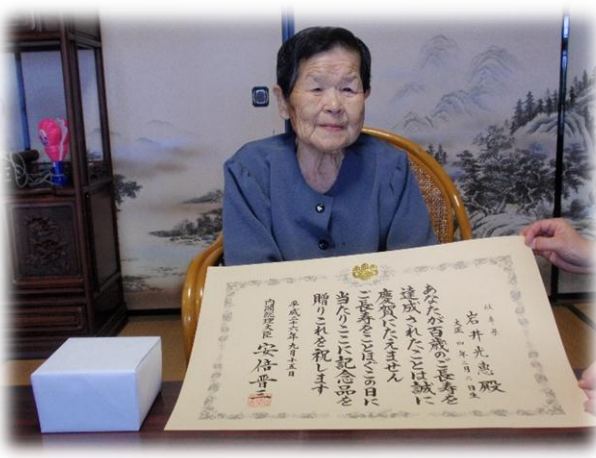 岐阜県
岩井光恵殿
大正四年
あなたが百歳のご長寿を
達成されたことは誠に
慶賀にたえません
ご長寿をことほぎこの日に
当たりここに記念品を
贈りこれを祝します
平成二十六年九月十五日
内閣総理大臣 安倍晋三